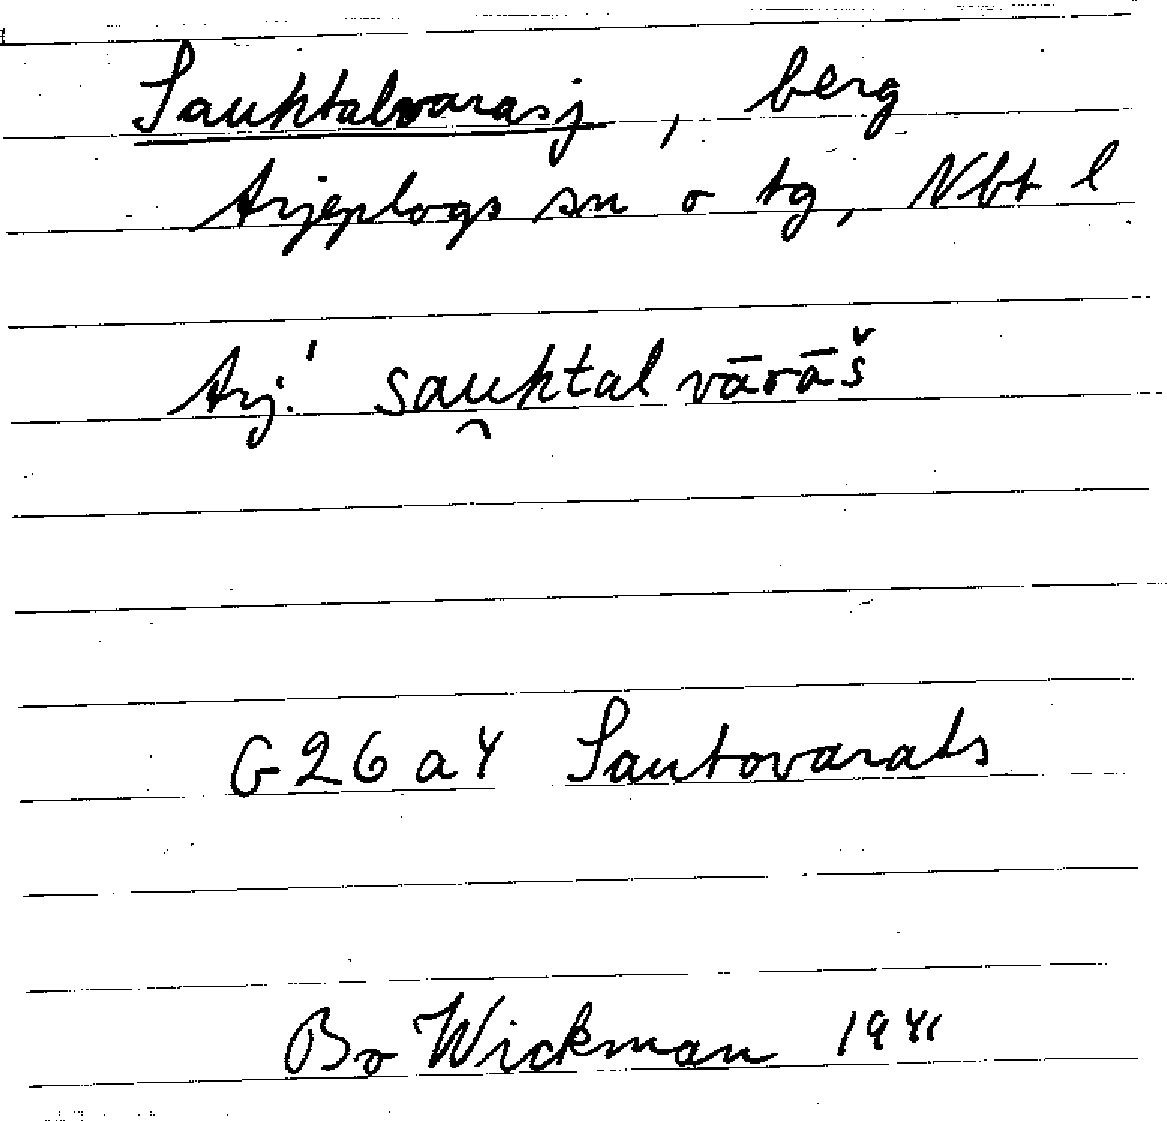 Sauktalvarasj, berg
Arjeplogs sn o tg, Nbt l
Arj.' sau̯ktal vārāš
G26a4 Sautovarats
Bo Wickman 1941